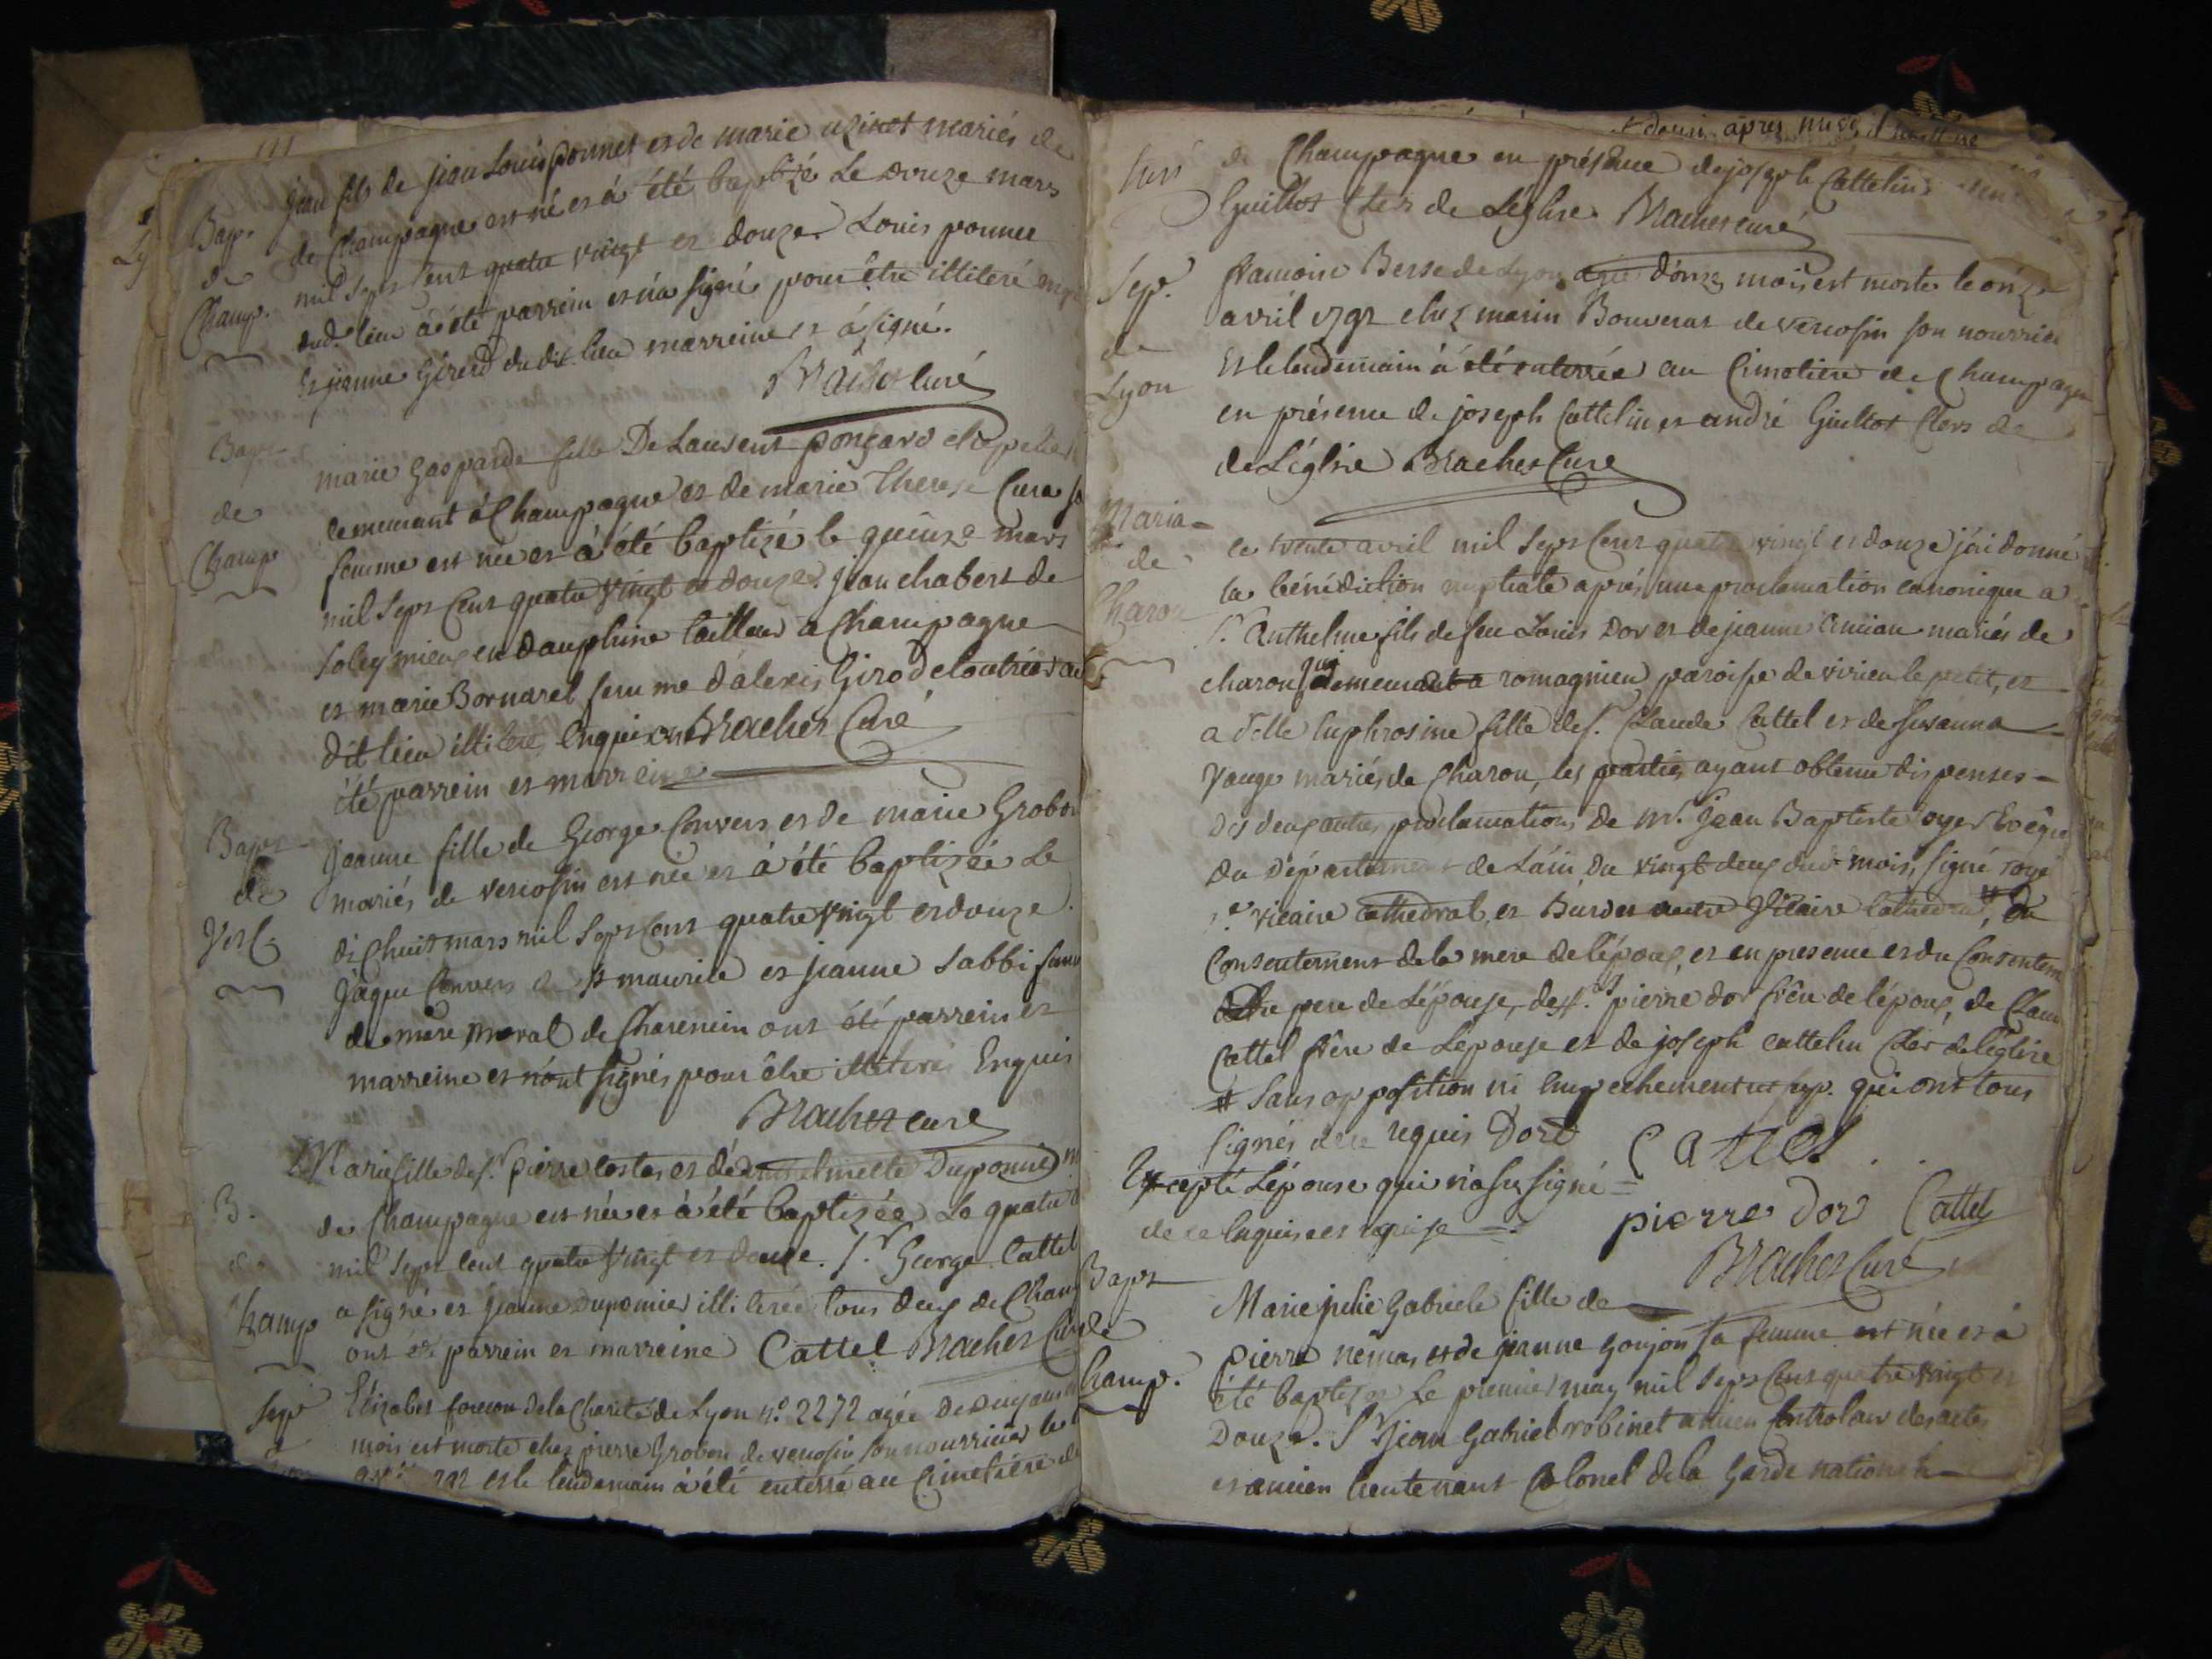 Bap.
de
Champ.
jean fils de jean Louis ponnet et de marie mariés de
de Champagne est né et à été baptizé Le douze mars
mil sept cent quatre vingt et douze. Louis ponnet
dud. lieu à été parrein et n'a signé pour être illiteré
Et jeanne Girerd du dit lieu marreine et à signé.
Brachet curé
Bapt
de
Champ
marie Gasparde fille De Laurent ponçard
demeurant à Champagne et de marie Therese Cura sa
femme est née et à été baptizé le quinze mars
mil sept cent quatre vingt et douze. jean chabert de
Soleymieux en dauphiné tailleur a Champagne
et marie Bornarel femme d'alexis Girod
dit lieu illiteré Enquis ont Brachet Curé
été parrein et marreine
Bapt
de
Verc
Jeanne fille de George Convers et de marie Grobon
mariés de vercosin est née et à été baptizée Le
dixhuit mars mil sept cent quatre vingt et douze.
Jaque Convers de St maurice et jeanne Sabbi femme
de mère moral de Charencin ont été parrein et
marreine et n'ont signés pour être illiterés Enquis
Brachet curé
B.
de
Champ
Marie fille de sr. pierre costaz et de Duponnier
de Champagne est née et à été baptizée Le quatre
mil sept cent quatre vingt et douze. sr. George Cattel
a signé et jeanne Duponnier illiterée tous deux de Champ
ont été parrein et marreine Cattel Brachet Curé
Sepe
de
Lyon
Elizabet de la Charité de Lyon n.º 2272 agée De deux ans
mois est morte chez pierre Grobon de vercosin son nourricier le
et le lendemain à été enterré au Cimetiere de
de Champagne en présence de joseph Cattelin
Guillot Clers de L'église Brachet curé
Sep.
de
Lyon
francoise Besse de Lyon agée d'onze mois est morte le onze
avril 1792 chez marin Bouverat de vercosin son nourricier
Et le lendemain à été enterrée au Cimetiere de Champagne
en présence de joseph Cattelin et andré Guillot Clers de
de L'église Brachet Curé
Maria-
de
Charon
ce trente avril mil sept cent quatre vingt et douze j'ai donné
la bénédiction nuptiale après une proclamation canonique a
sr. Anthelme fils de feu Louis Dor et de jeanne mariés de
charon demeurant a romagnieu paroisse de virieu le petit, et
a delle Euphrosine fille de sr. Claude Cattel et de Susanna
Vauge mariés de Charon, les parties ayant obtenu dispenses-
Des deux autres proclamations de mr. Jean Baptiste royer Evêque
du Département de L'ain Du vingt deux dud. mois, signé royé
vicaire cathedral, et Burdet autre Vicaire Cathedral #, Du
Consentement de la mere de l'époux, et en presence et du Consentem
du pere de L'épouse, des srs pierre dor frère de l'époux, de Clau
Cattel frère de L'épouse et de joseph cattelin Cler de l'église
# Sans opposition ni Empechement qui ont tous
Signés de ce requis Dort Cattel
Excepté L'épouse qui n'a su signé
de ce Enquise et requise pierre dor Cattel
Brachet Curé
Bapt
de
Champ.
Marie julie Gabriele fille de
pierre et de jeanne goujon sa femme est née et à
été baptizée Le premier may mil sept cent quatre vingt et
Douze. Sr jean Gabriel robinet ancien Controleur des actes
et ancien lieutenant Colonel de la garde nationale